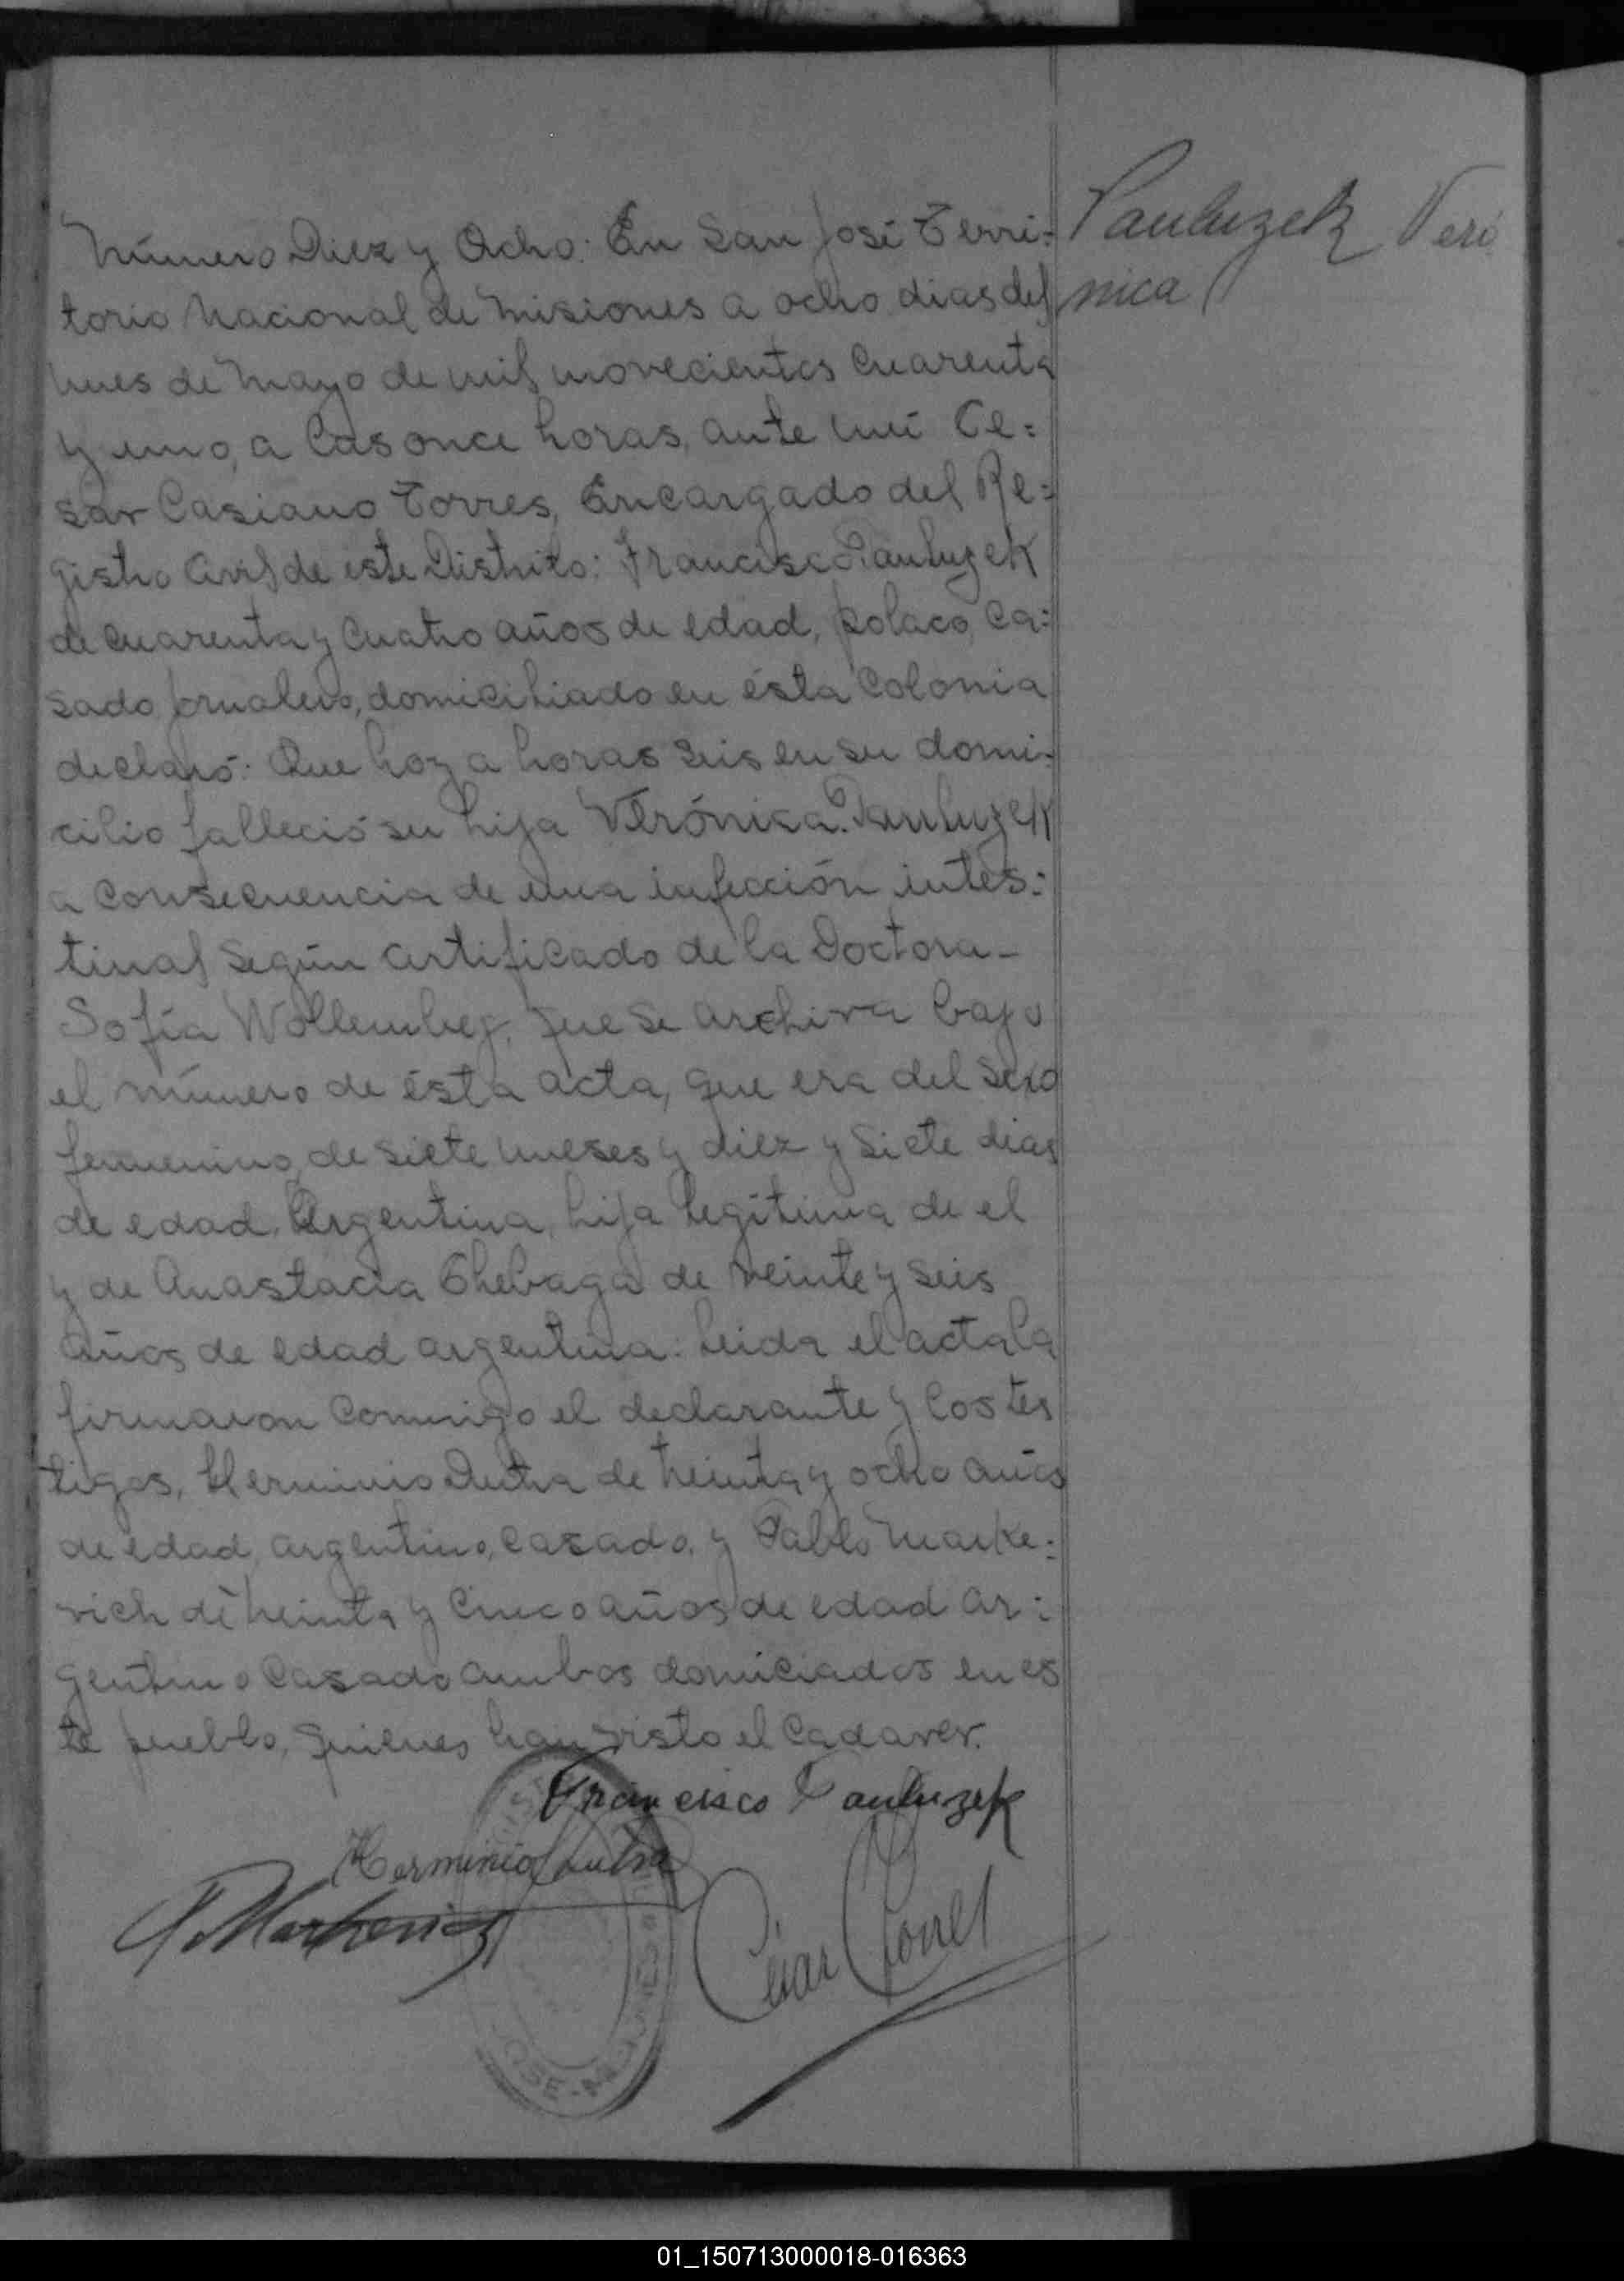 Número Diez y Ocho: En San José Terri=
torio Nacional de Misiones a ocho dias del
mes de Mayo de mil novecientos Cuarenta
y uno, a las once horas, ante mi Ce=
sar Casiano Torres, Encargado del Re=
gistro Civil de este Distrito: Francisco Pauluzek
de cuarenta y Cuatro años de edad, polaco, Ca=
sado, domiciliado en ésta Colonia
declaró: Que hoy a horas seis en su domi=
cilio falleció su hija Verónica Pauluzek
a consecuencia de una infección intes=
tinal según certificado de la Doctora-
Sofía que se archiva bajo
el número de ésta acta, que era del sexo
femenino, de siete meses y diez y siete dias
de edad, Argentina, hija legítima de el
y de Anastacia de veinte y seis
años de edad argentina: Leida el acta la
firmaron conmigo el declarante y los tes
tigos, Herminio Dutra de treinta y ocho años
de edad, argentino, casado, y Pablo Marke=
vich de treinta y cinco años de edad ar=
gentino casado ambos domiciados en es
te pueblo, quienes han visto el Cadaver.
Francisco Pauluzek
Herminio Dutra
P. Markevich
César Torres
JOSE - MISIONES
Pauluzek Veró
nica
01_150713000018-016363